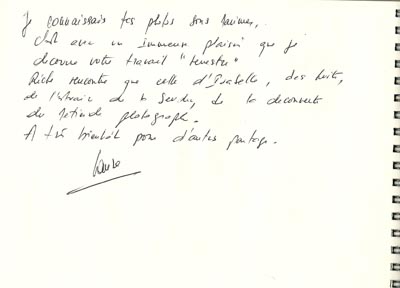 Je connaissais tes photos sous marines,
c'est avec un immense plaisir que je
découvre votre travail "terrestre"
Riche rencontre que celle d'Isabelle, des
de de la de la découverte
du photograph.
A très bientôt pour d'autres partage.